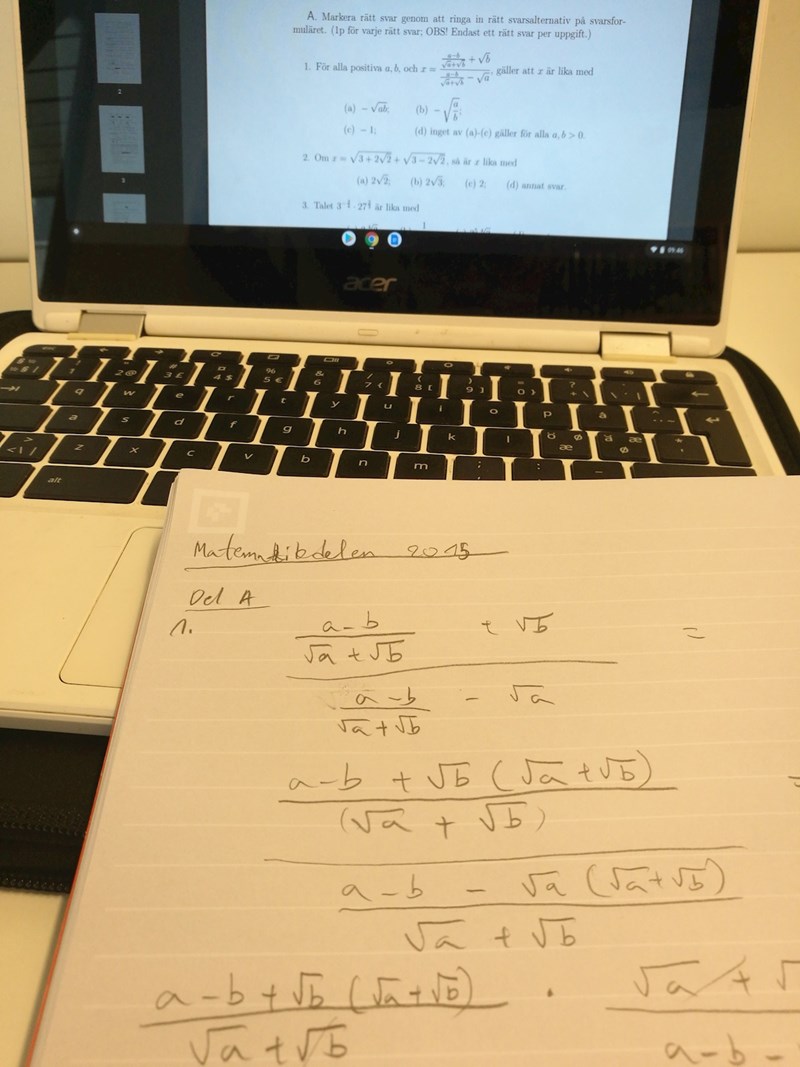 A. Markera rätt svar genom att ringa in rätt svarsalternativ på svarsfor-
muläret. (1p för varje rätt svar; OBS! Endast ett rätt svar per uppgift.)
1. För alla positiva a, b, och x = ((a−b)/(√a+√b) + √b)/((a−b)/(√a+√b) − √a), gäller att x är lika med
(a) −√ab; (b) −√(a/b);
(c) −1; (d) inget av (a)-(c) gäller för alla a, b > 0.
2. Om x = √(3 + 2√2) + √(3 − 2√2), så är x lika med
(a) 2√2; (b) 2√3; (c) 2; (d) annat svar.
3. Talet är lika med
2
3
acer
Matematikdelen 2015
Del A
1. ((a−b)/(√a + √b) + √b)/((a−b)/(√a+√b) − √a) =
((a−b + √b (√a+√b))/(√a + √b))/((a−b − √a (√a+√b))/(√a + √b)) =
(a−b+√b (√a+√b))/(√a+√b) · (√a + √)/(a−b −